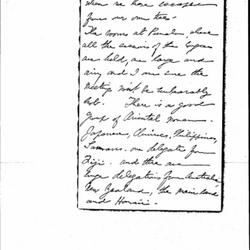 when we have escaped
from our own
The rooms at Punahou where
all the sessions of the
are held, are large and
airy and I am sure the
meetings won't be unbearably
hot. There is a good
group of Oriental women.
Japanese, Chinese, Philippines,
Samoans. one delegate from
Fiji. and there are
large delegations from Australia,
New Zealand, the main land
and Hawaii.